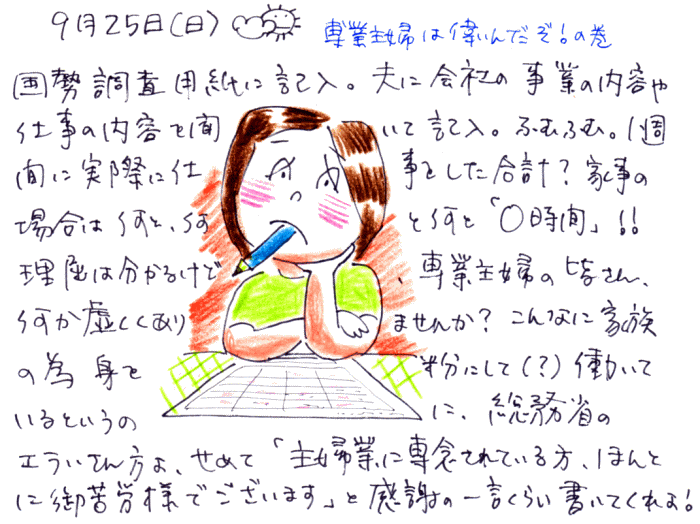 9月25日(日)
専業主婦は偉いんだぞ!の巻
国勢調査用紙に記入。夫に会社の事業の内容や
仕事の内容を聞いて記入。ふむふむ。1週
間に実際に仕事をした合計?家事の
場合は何と、何と何と「〇時間」!!
理屈は分かるけど、専業主婦の皆さん、
何か虚しくありませんか?こんなに家族
の為身を粉にして(?)働いて
いるというのに、総務省の
エライさん方よ、せめて「主婦業に専念されている方、ほんと
に御苦労様でございます」と感謝の一言くらい書いてくれよ!